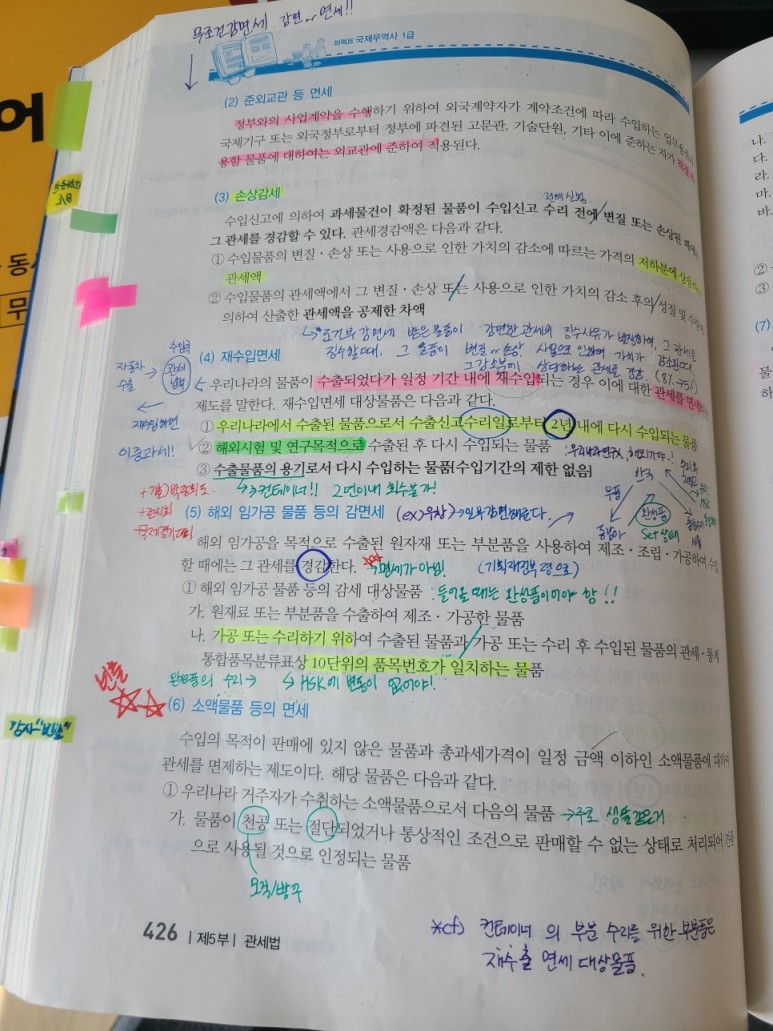 무조건감면세 감면 or 면세!!
어펙트 국제무역사 1급
(2) 준외교관 등 면세
정부와의 사업계약을 수행하기 위하여 외국계약자가 계약조건에 따라 수입하는 업무용품
국제기구 또는 외국정부로부터 정부에 파견된 고문관, 기술단원, 기타 이에 준하는 자가
용할 물품에 대하여는 외교관에 준하여 적용된다.
(3) 손상감세
수입신고에 의하여 과세물건이 확정된 물품이 수입신고 수리 전에 변질 또는 손상된 때에는
그 관세를 경감할 수 있다. 관세경감액은 다음과 같다.
① 수입물품의 변질·손상 또는 사용으로 인한 가치의 감소에 따르는 가격의 저하분에
관세액
② 수입물품의 관세액에서 그 변질·손상 또는 사용으로 인한 가치의 감소 후의 성질 및
의하여 산출한 관세액을 공제한 차액
(4) 재수입면세
자동차
수출
관세
재수입하면
이중과세!
우리나라의 물품이 수출되었다가 일정 기간 내에 재수입되는 경우 이에 대한 관세를 면세
제도를 말한다. 재수입면세 대상물품은 다음과 같다.
① 우리나라에서 수출된 물품으로서 수출신고수리일로부터 2년 내에 다시 수입되는 물품
② 해외시험 및 연구목적으로 수출된 후 다시 수입되는 물품
③ 수출물품의 용기로서 다시 수입하는 물품(수입기간의 제한 없음)
컨테이너!! 2년이내 회수불가!
+ 박람회도
+ 전시회
국제경기대회
한국
부품
완성품
Set 상태
(5) 해외 임가공 물품 등의 감면세
해외 임가공을 목적으로 수출된 원자재 또는 부분품을 사용하여 제조·조립·가공하여
할 때에는 그 관세를 경감한다.
면세가 아님!
(기획재정부령으로)
① 해외 임가공 물품 등의 감세 대상물품
: 들어올 때는 완성품이어야 함!!
가. 원재료 또는 부분품을 수출하여 제조·가공한 물품
나. 가공 또는 수리하기 위하여 수출된 물품과 가공 또는 수리 후 수입된 물품의 관세·통계
통합품목분류표상 10단위의 품목번호가 일치하는 물품
완제품의 수리→ HSK에 변동이 없어야!
빈출
(6) 소액물품 등의 면세
수입의 목적이 판매에 있지 않은 물품과 총과세가격이 일정 금액 이하인 소액물품에 대하여
관세를 면제하는 제도이다. 해당 물품은 다음과 같다.
① 우리나라 거주자가 수취하는 소액물품으로서 다음의 물품
→ 주로 샘플같은거
가. 물품이 천공 또는 절단되었거나 통상적인 조건으로 판매할 수 없는 상태로 처리되어
으로 사용될 것으로 인정되는 물품
426 | 제5부 | 관세법
*cf) 컨테이너의 부분 수리를 위한 부분품은
재수출 면세 대상물품.